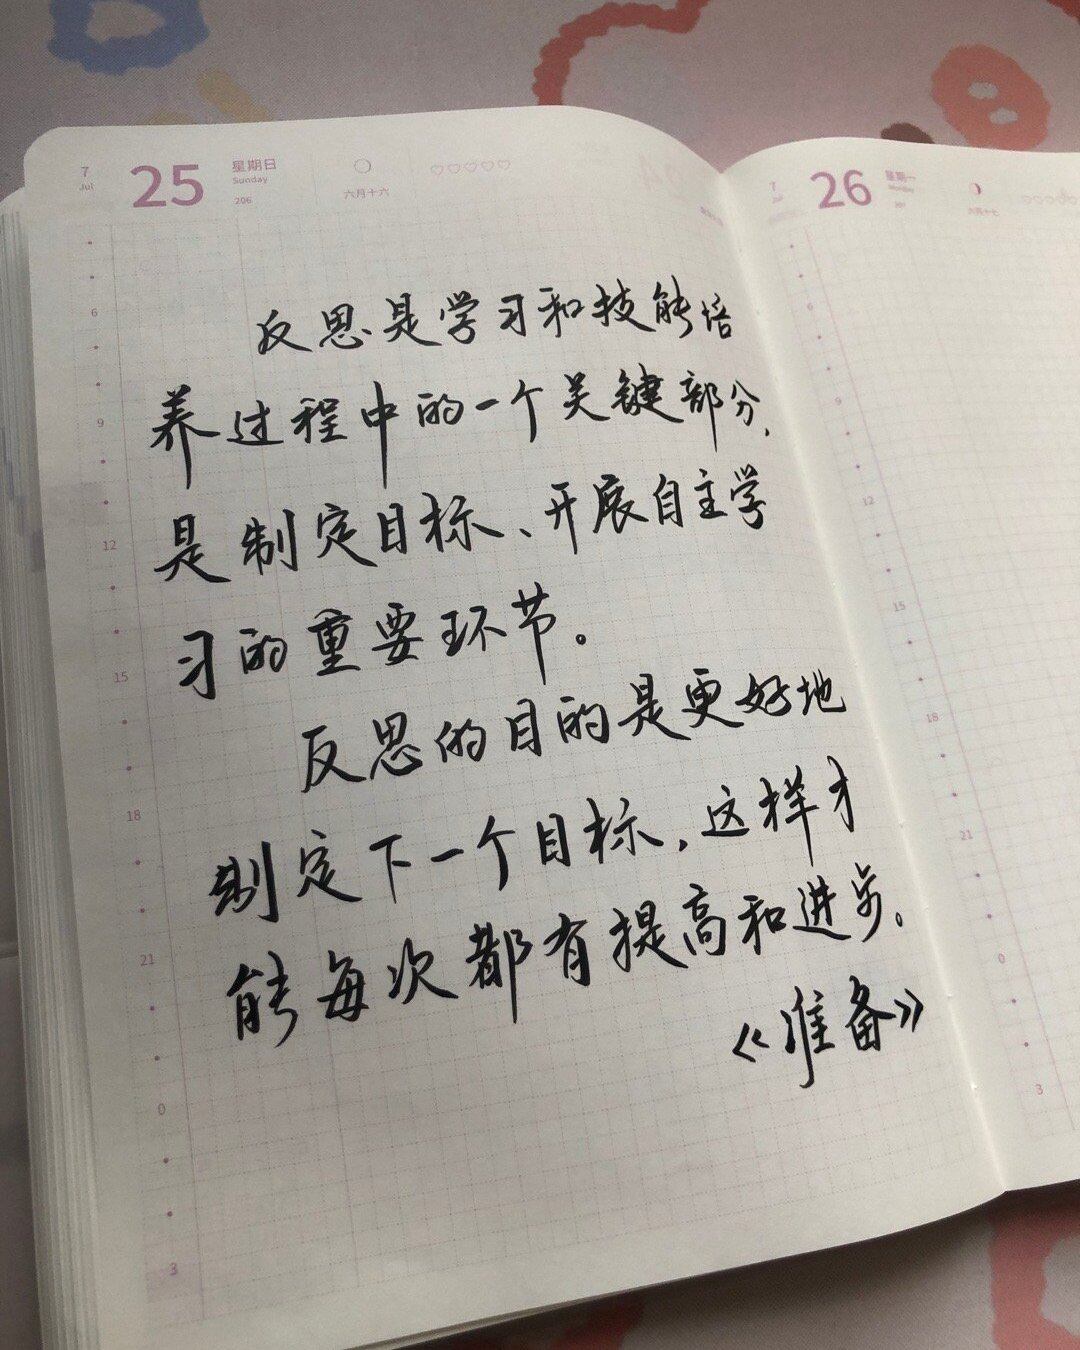 7
Jul
25
星期日
Sunday
206
六月十六
反思是学习和技能培
养过程中的一个关键部分，
是制定目标、开展自主学
习的重要环节。
反思的目的是更好地
制定下一个目标，这样才
能每次都有提高和进步。
《准备》
6
9
12
15
18
21
0
3
7
26
星期一
Monday
六月十七
6
9
12
15
18
21
0
3